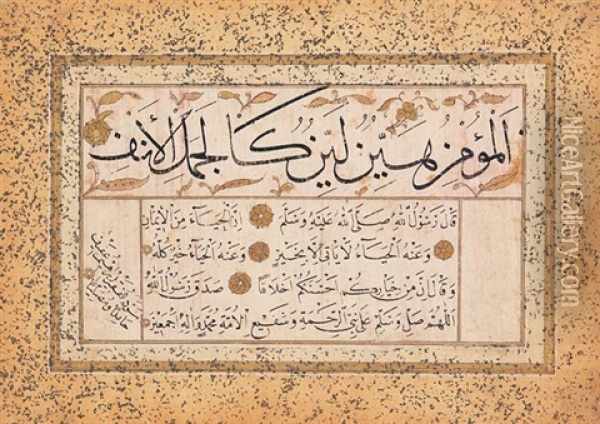 المؤمن هين لين كالجمل الأنف
قال رسول الله صلى الله عليه وسلم إن الحياء من الإيمان
وعنه الحياء لا يأتي إلا بخير وعنه الحياء خير كله
وقال إن من خياركم أحسنكم أخلاقا صدق رسول الله
اللهم صل وسلم على نبي الرحمة وشفيع الأمة محمد وآله أجمعين
NiceArtGallery.com